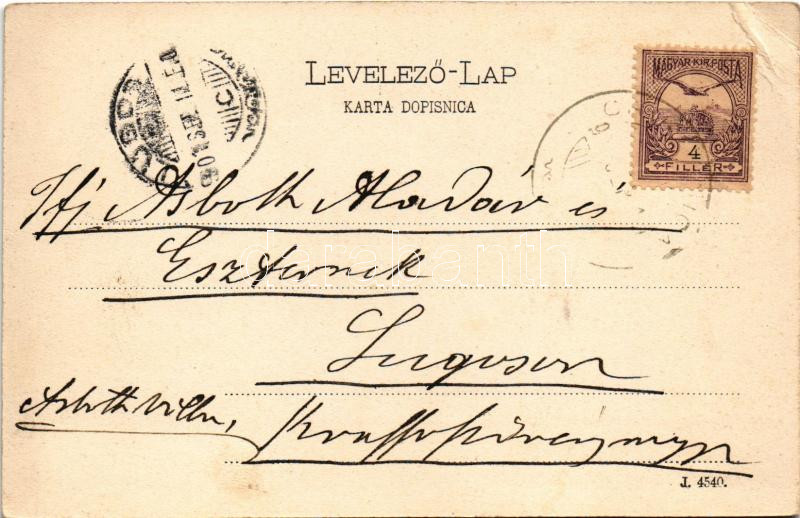 LEVELEZŐ-LAP
KARTA DOPISNICA
MAGYAR KIR. POSTA
4
FILLÉR
LUGOS
Ifj Asboth Aladár és
Eszternek
Lugoson
Asboth villa,
Krassószörény
J. 4540.
darabanth